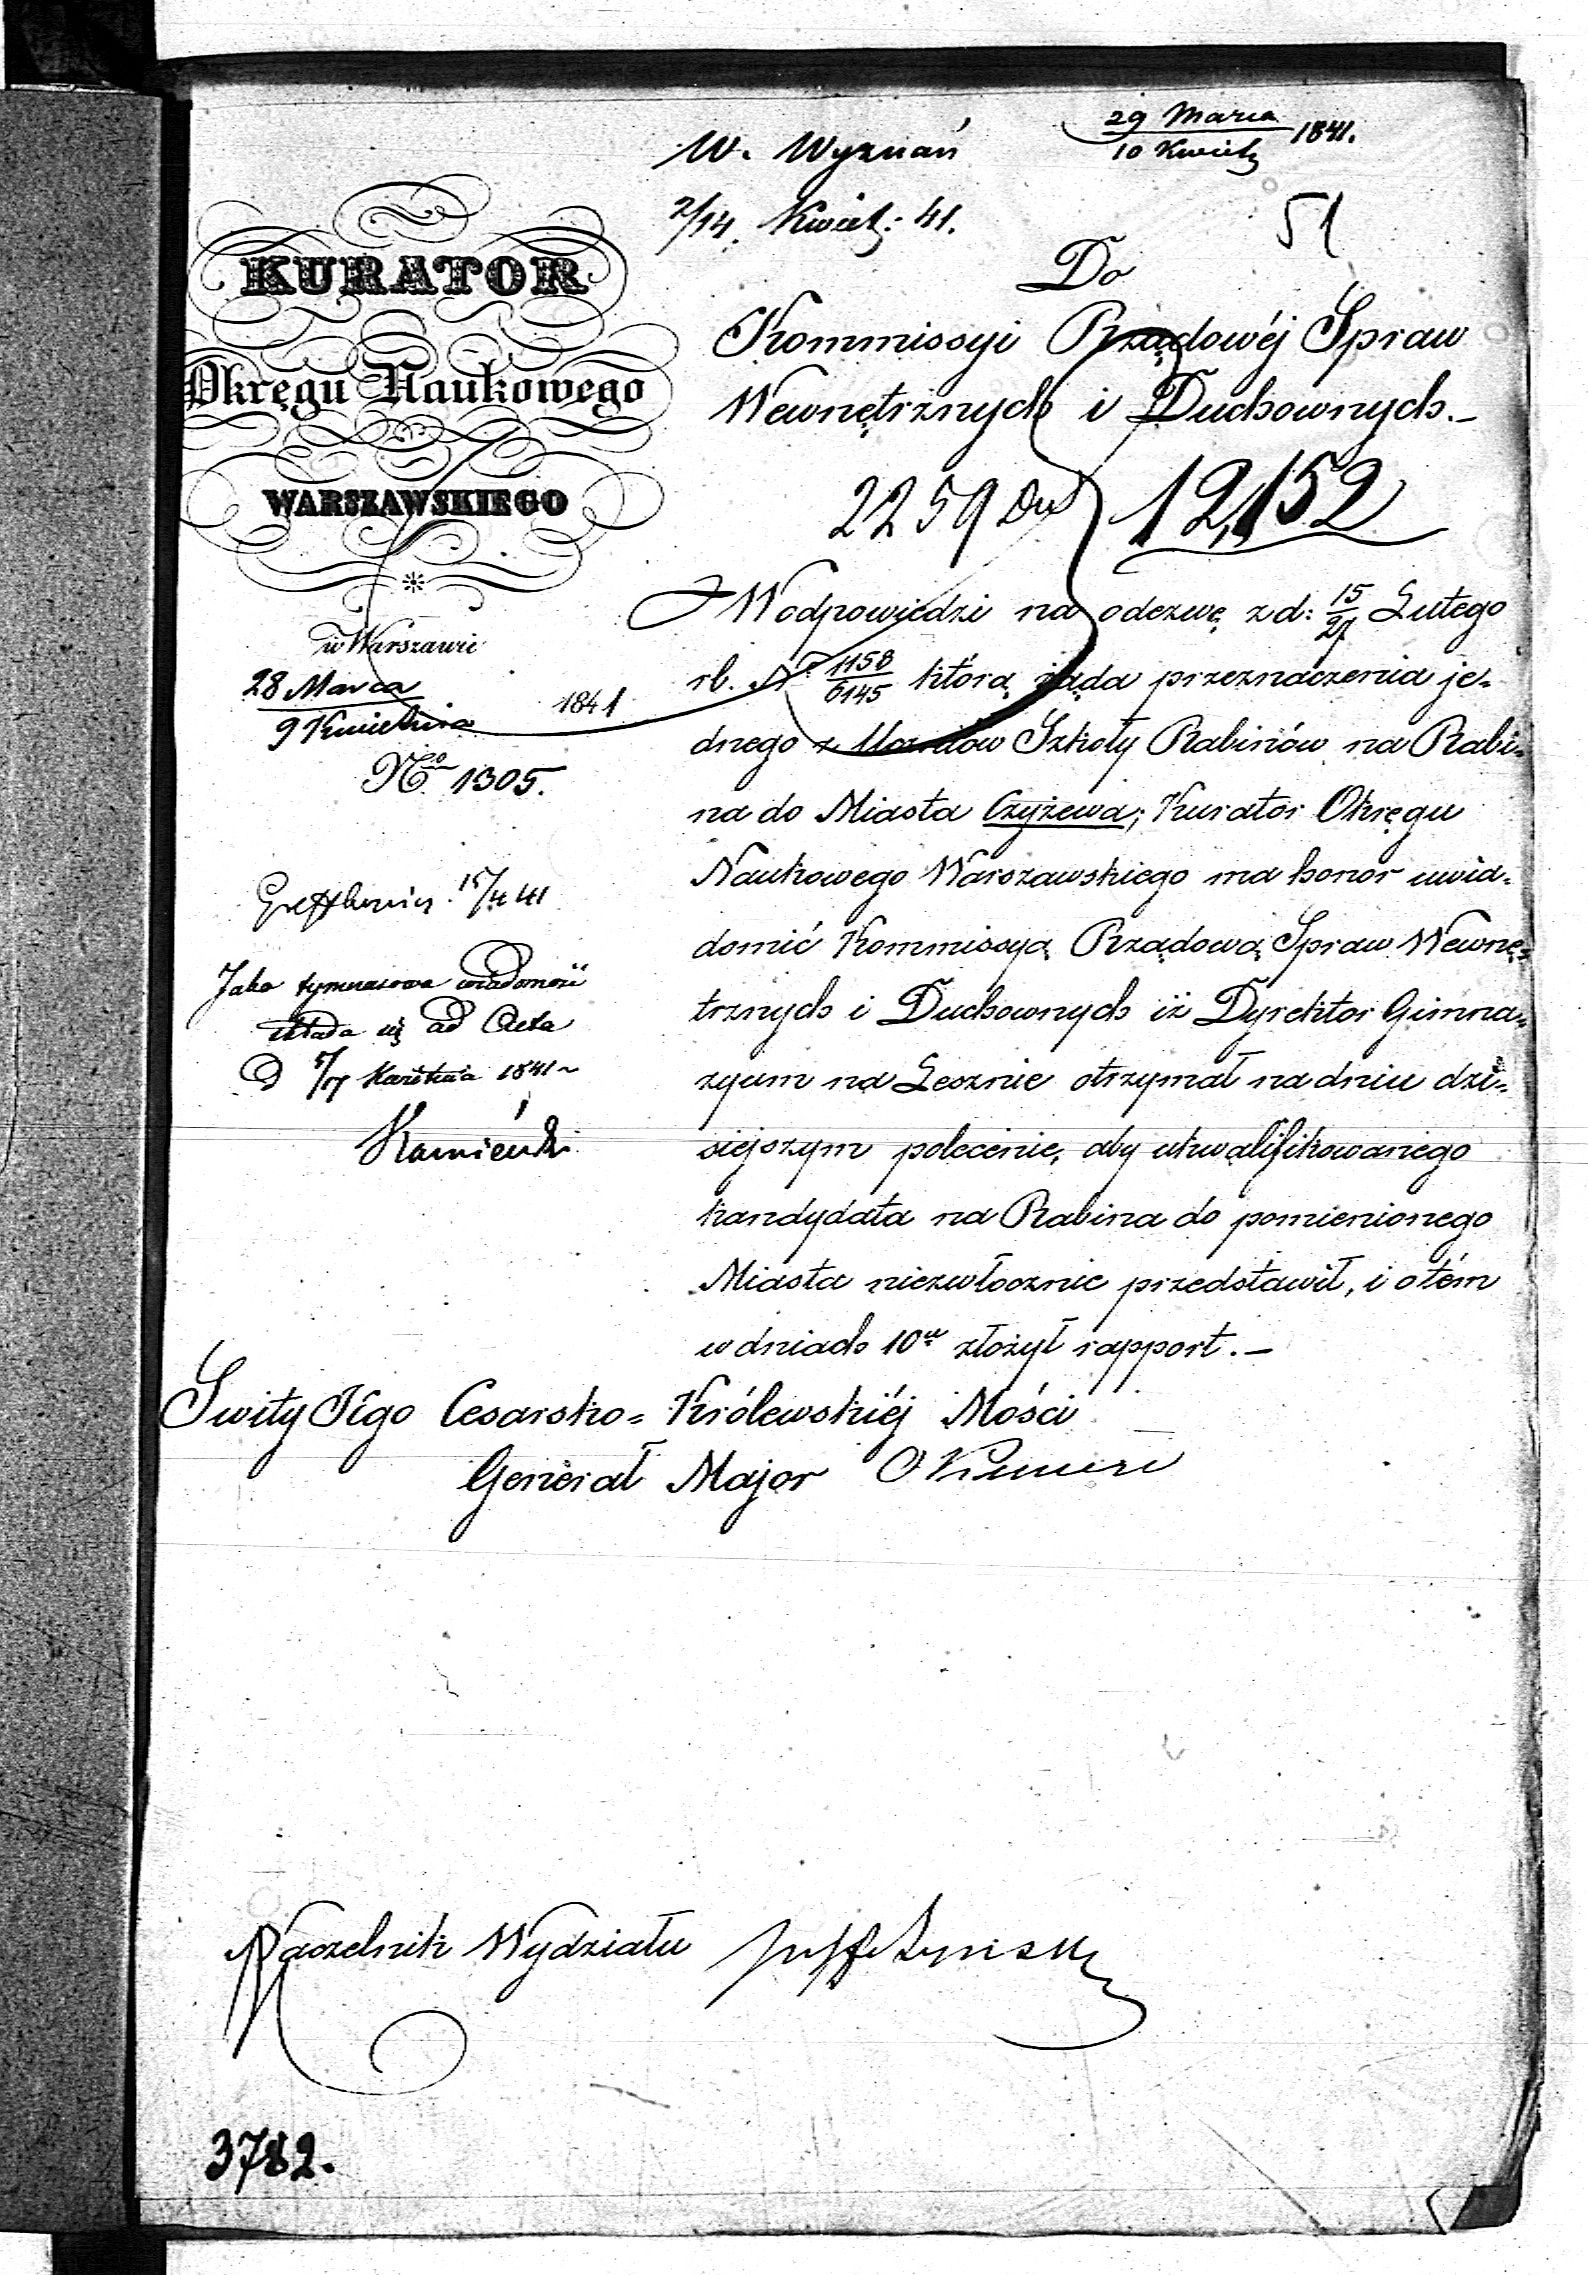 29 Marca
10 Kwiet 1841.
W. Wyznań
2/14. Kwiet: 41.
51
KURATOR
Okręgu Naukowego
WARSZAWSKIEGO
w Warszawie
28 Marca
9 Kwietnia 1841
No 1305.
Do
Kommissyi Rządowéj Spraw
Wewnętrznych i Duchownych.-
2259 12,152
W odpowiedzi na odezwę z d: 15/27 Lutego
rb. N 1158/6145 którą żąda przeznaczenia je-
dnego z Uczniów Szkoły Rabinów na Rabi-
na do Miasta Czyżewa; Kurator Okręgu
Naukowego Warszawskiego ma honor uwia-
domić Kommissyą Rządową Spraw Wewnę-
trznych i Duchownych iż Dyrektor Gimna-
zyum na Lesznie otrzymał na dniu dzi-
siejszym polecenie, aby ukwalifikowanego
kandydata na Rabina do pomienionego
Miasta niezwłocznie przedstawił, i o tém
w dniach 10u złożył rapport.-
15/4 41
Jako tymczasowa wiadomość
składa się ad Acta
D 5/17 Kwietnia 1841
Kamieński
Świty Jégo Cesarsko-Królewskiéj Mości
Generał Major Okunew
Naczelnik Wydziału
3782.